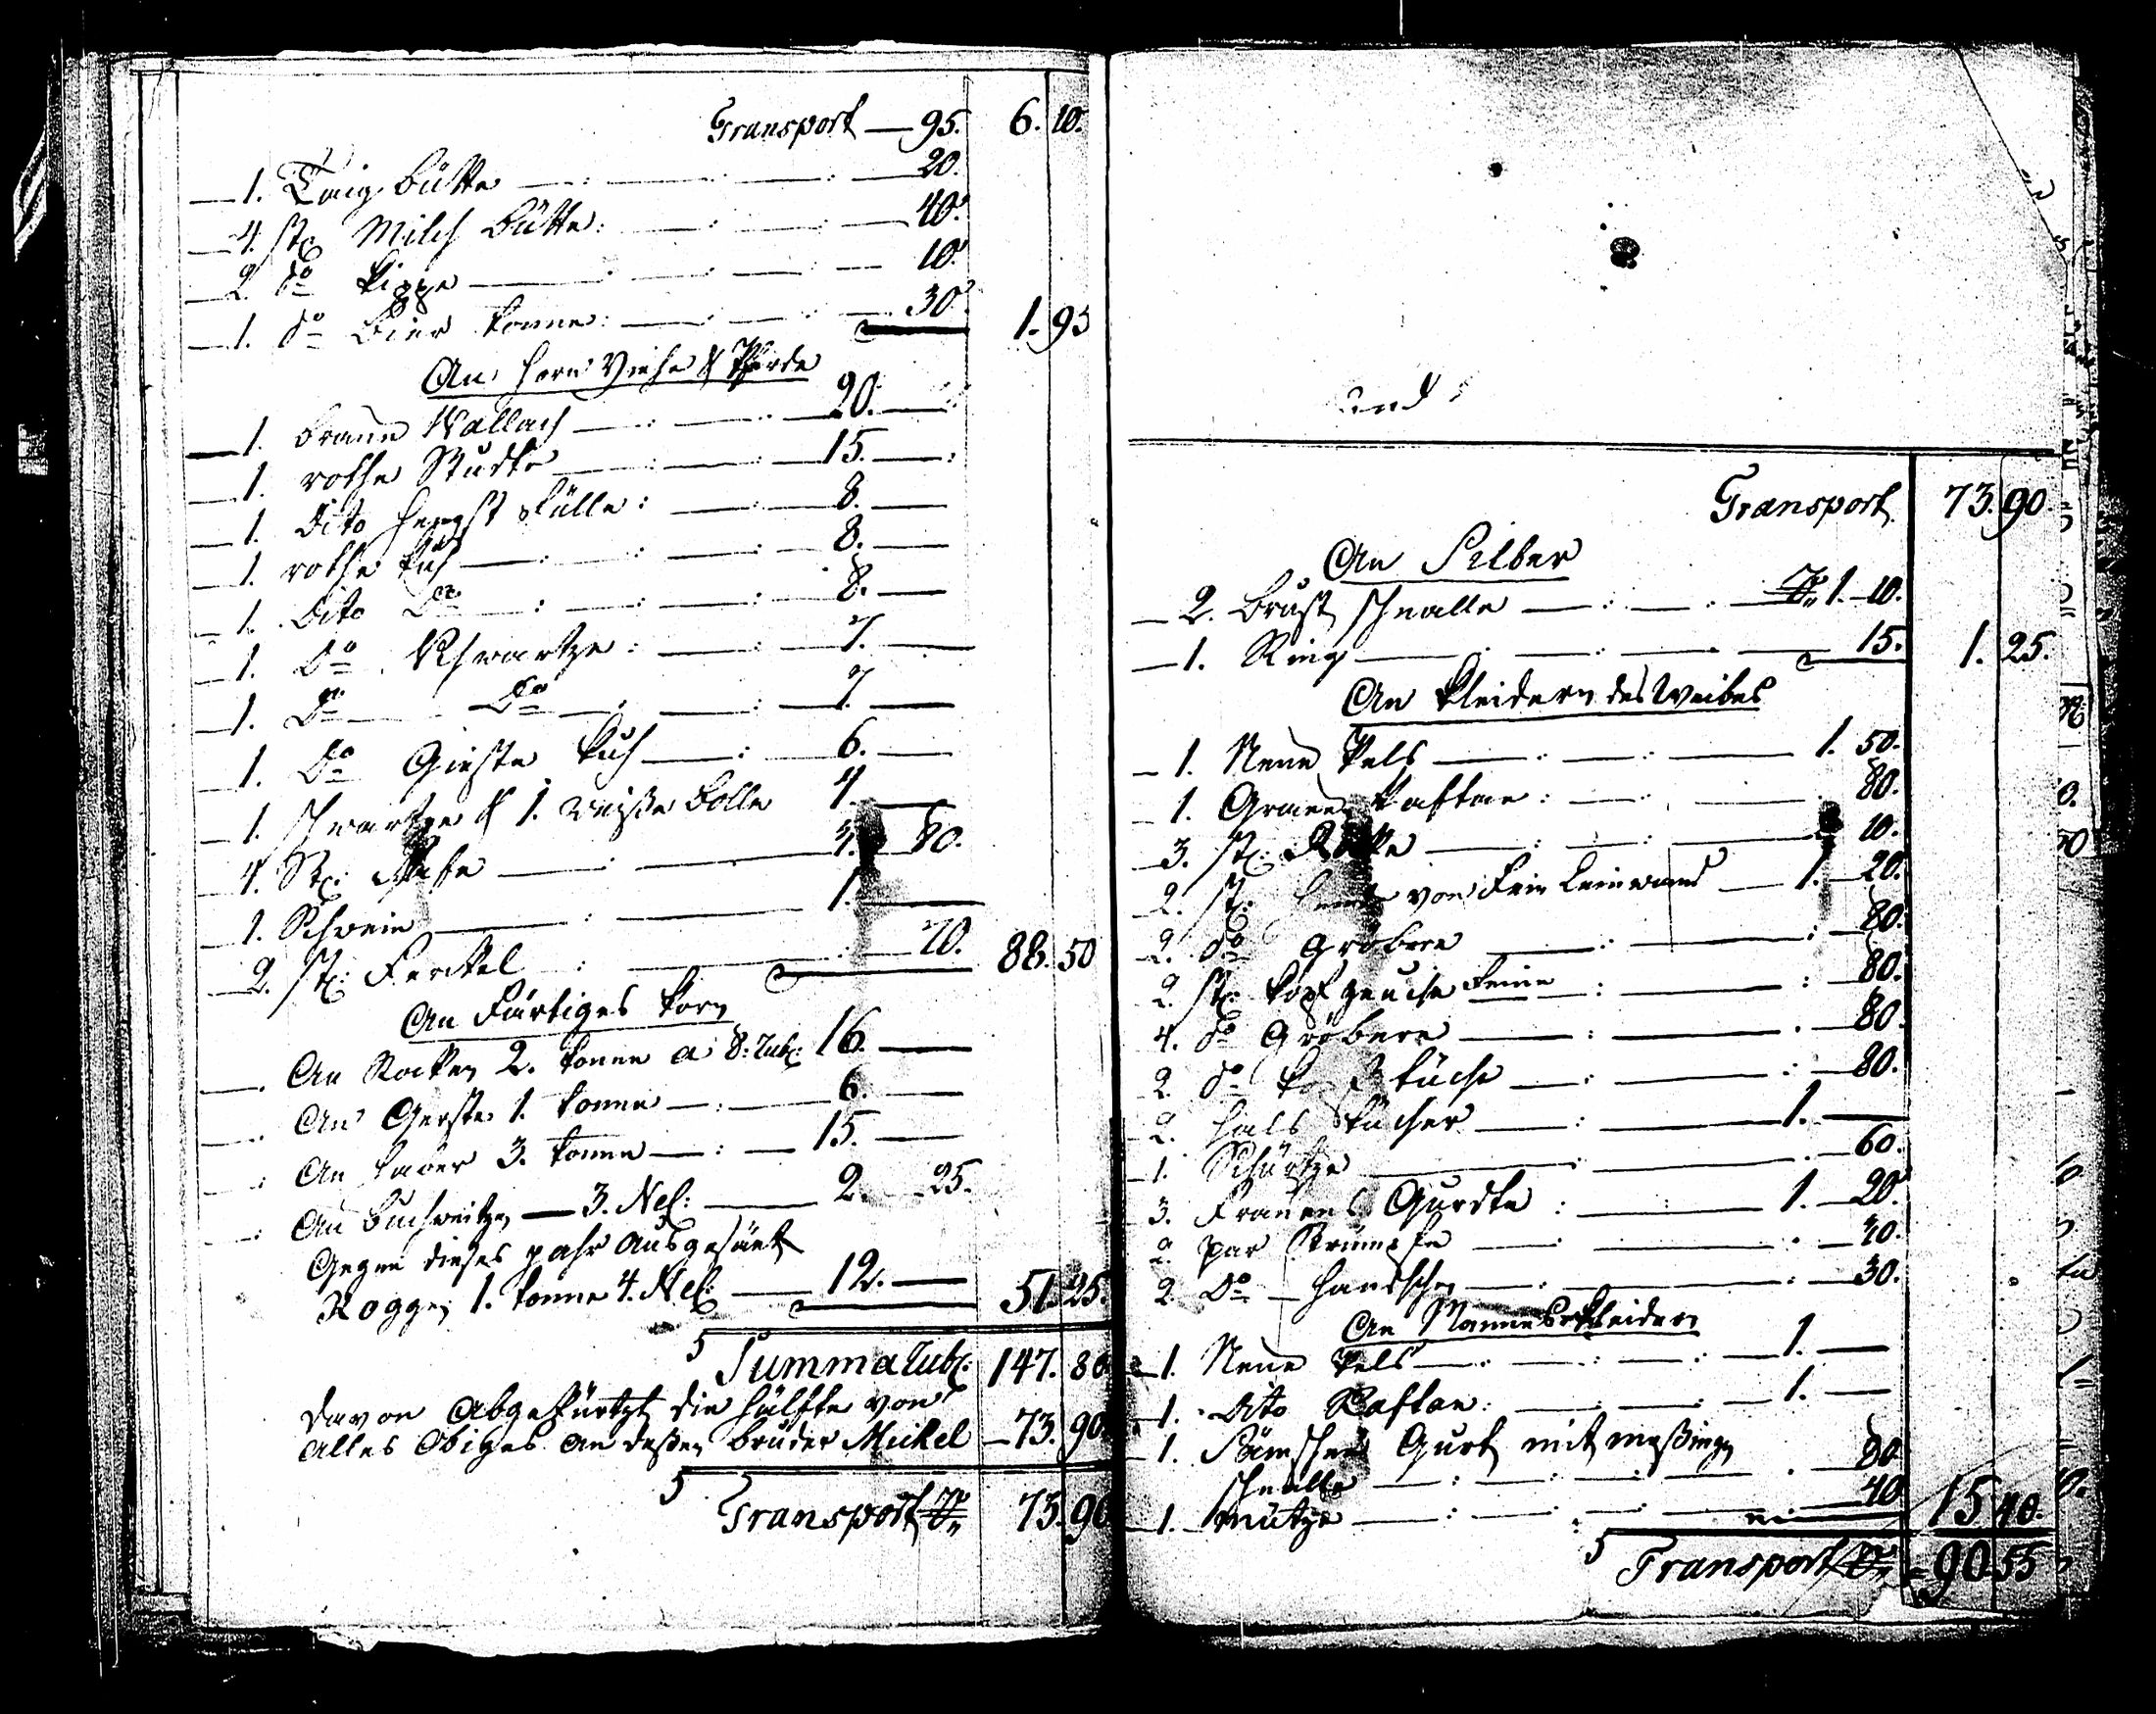 Transport — 95. 6. 10.
1. Taig Bütte 20.
4. stc Milch Bütte: 40.
2. do Kippe 10.
1. do Bier Tonne: 30. 1. 95
An Horn Viehe & Pferde
1. braun Wallach 20.
1. rothe Studte 15.
1. Dito Hengst Fülle: 8.
1. rothe Kuh 8.
1. Dito Do 8.
1. Do Schwartze: 7.
1. Do Do 7.
1. Do Gieste Kuh 6.
1. schwartze & 1. weiße Bolle 4.
4. Stc: Schafe 80.
1. Schwein 1.
2. stc: Ferckel 70. 88. 50
An Färtiges Korn
An Rocken 2. Tonne a 8: Rubl: 16.
An Gerste 1. Tonne 6.
An Haver 3. Tonne 15.
An Buchweitzen — 3. 2. 25.
Gegen dieses Jahr Ausgesäet
Roggen 1. Tonne 4. 12. 51. 25.
Summa Rubl: 147. 80
Davon Abgekürtzt die Hälffte von
Alles Obiges an deßen Bruder Michel 73. 90.
Transport 73. 90
Transport 73. 90.
An Silber
2. Brust schnalle 1. 10.
1. Ring 15. 1. 25.
An Kleidern des Weibes
1. Neue Pels 1. 50.
1. Graue Kaftan: 80.
3. stc: Röcke 10.
2. stc: von Fein Leinwand 1. 20.
2. do Gröbere 80.
2. stc: Kopf zeuche Feine 80.
4. do Gröbere 80.
2. do Tücher 80.
2. Hals Tücher 1.
1. Schürtze 60.
3. Frauens Gurdte: 1. 20.
2. par Strümpfe 30.
2. Do Handschen 30.
An Mannes Kleidern
1. Neue Pels 1.
1. Dito Kaftan: 1.
1. Sämscher Gurt mit meßingn
schnalle 80
1. Mütze 40 15 40.
Transport 90 55